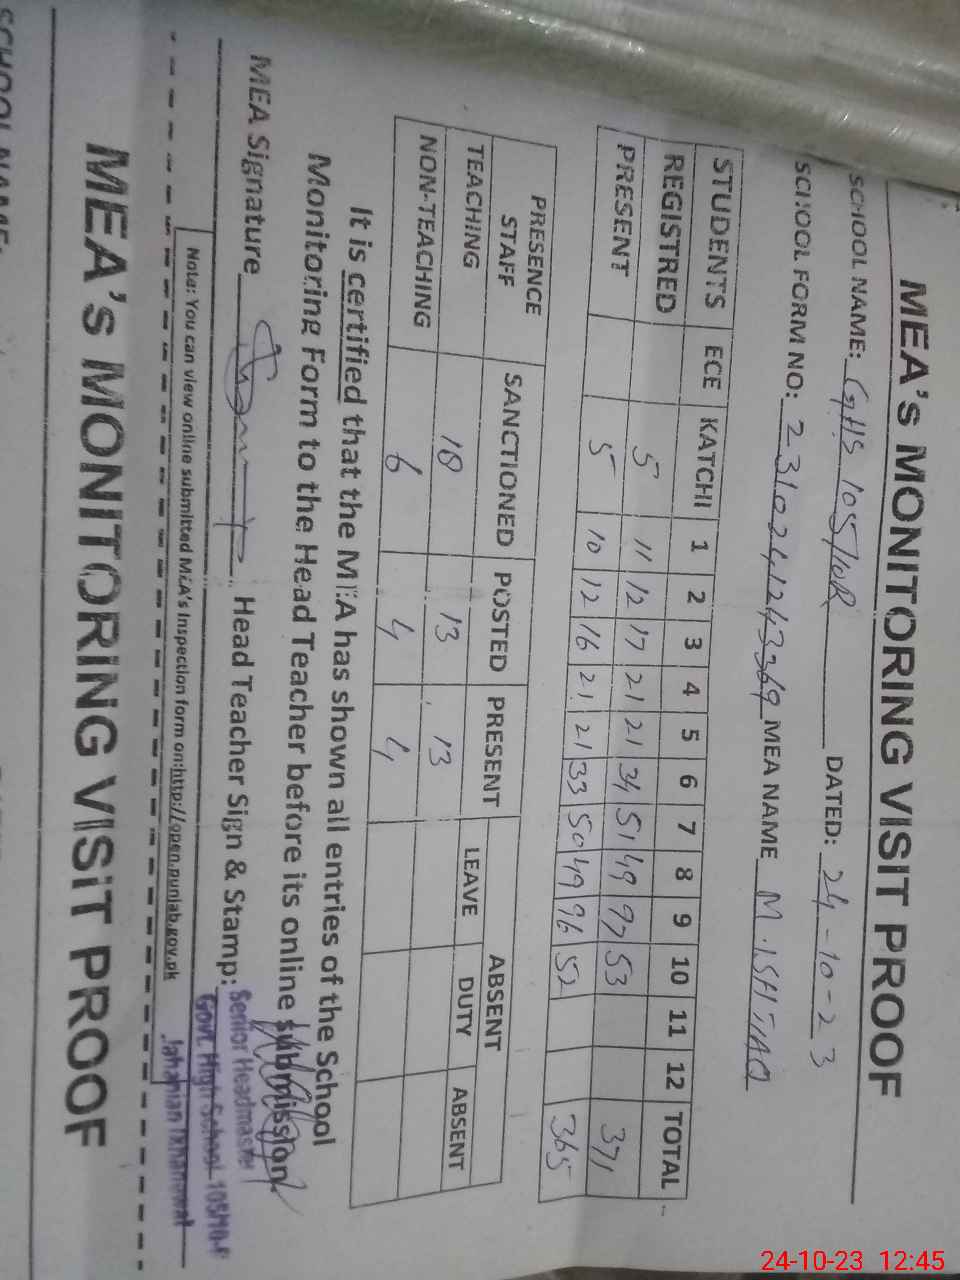 MEA's MONITORING VISIT PROOF
SCHOOL NAME: GHS 105/10R DATED: 24-10-23
SCHOOL FORM NO: 2310241243369 MEA NAME M.ISHTIAQ
STUDENTS ECE KATCHI 1 2 3 4 5 6 7 8 9 10 11 12 TOTAL
REGISTRED 5 11 12 17 21 21 34 51 49 97 53 371
PRESENT 5 10 12 16 21 21 33 50 49 96 52 365
PRESENCE STAFF SANCTIONED POSTED PRESENT ABSENT
LEAVE DUTY ABSENT
TEACHING 18 13 13
NON-TEACHING 6 4 4
It is certified that the MEA has shown all entries of the School
Monitoring Form to the Head Teacher before its online submission.
MEA Signature Head Teacher Sign & Stamp:
Senior Headmaster
Govt. High School 105/10-R
Jahanian (Khanewal
Note: You can view online submitted MEA's Inspection form on:http://open.punjab.gov.pk
MEA's MONITORING VISIT PROOF
SCHOOL NAME:
24-10-23 12:45